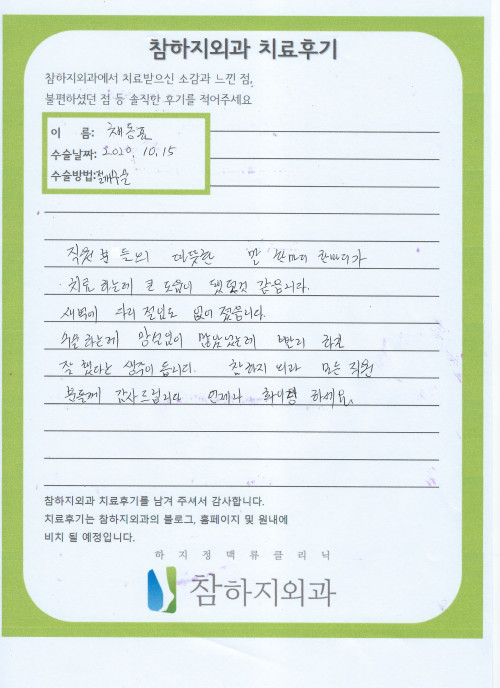 참하지외과 치료후기
참하지외과에서 치료받으신 소감과 느낀 점,
불편하셨던 점 등 솔직한 후기를 적어주세요
이 름: 채동표
수술날짜: 2020. 10. 15
수술방법: 절개수술
직원 분 들의 따뜻한 말 한마디 한마디가
치료 하는데 큰 도움이 됐던것 같읍니다.
새벽에 다리 절임도 없어 졌읍니다.
수술 하는게 망설임이 많았었는데 빨리 하길
잘 했다는 생각이 듭니다. 참하지 외과 모든 직원
분들께 감사드립니다 언제나 화이팅 하세요.
참하지외과 치료후기를 남겨 주셔서 감사합니다.
치료후기는 참하지외과의 블로그, 홈페이지 및 원내에
비치 될 예정입니다.
하지정맥류클리닉
참하지외과